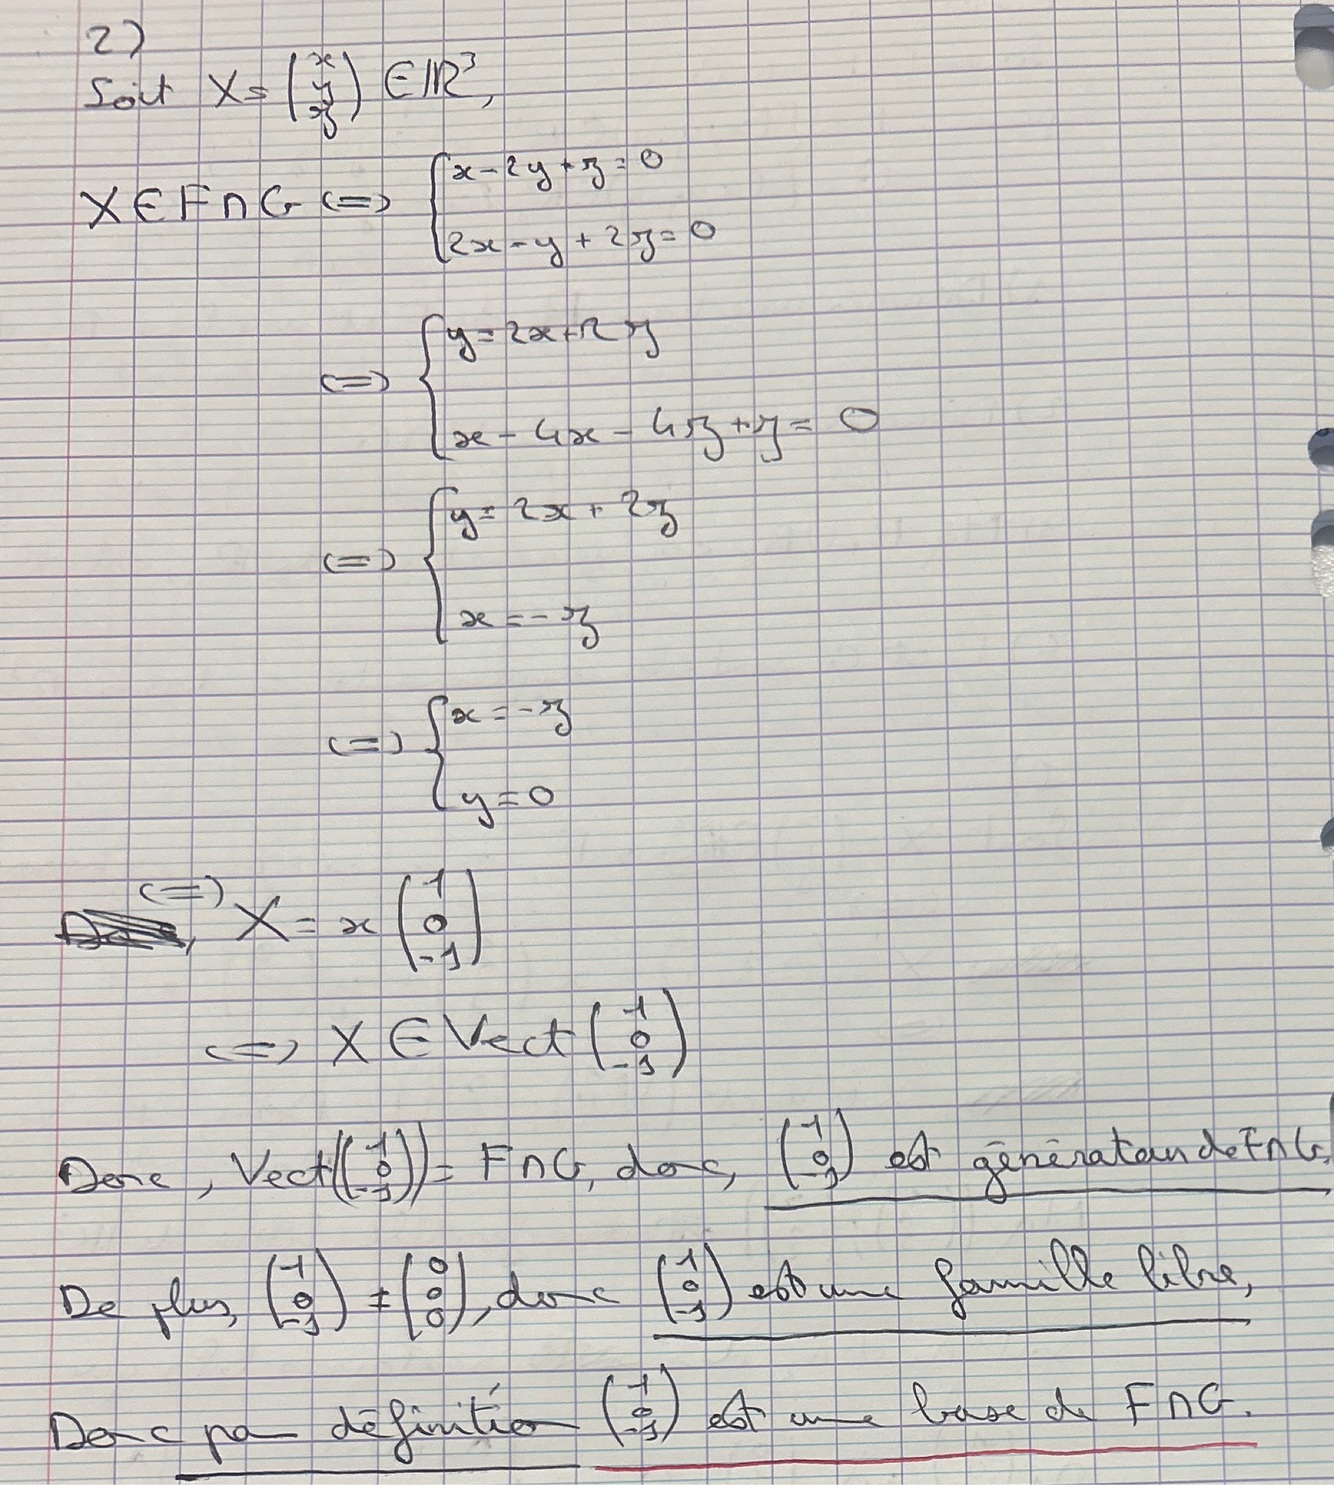 2)
Soit X = (x y z) ∈ ℝ³,
X ∈ F ∩ G <=> { x - 2y + z = 0
2x - y + 2z = 0
<=> { y = 2x + 2z
x - 4x - 4z + z = 0
<=> { y = 2x + 2z
x = -z
<=> { x = -z
y = 0
<=> X = x (1 0 -1)
<=> X ∈ Vect (1 0 -1)
Donc, Vect((1 0 -1)) = F ∩ G, donc, (1 0 -1) est générateur de F ∩ G,
De plus, (1 0 -1) ≠ (0 0 0), donc (1 0 -1) est une famille libre,
Donc par définition (1 0 -1) est une base de F ∩ G.